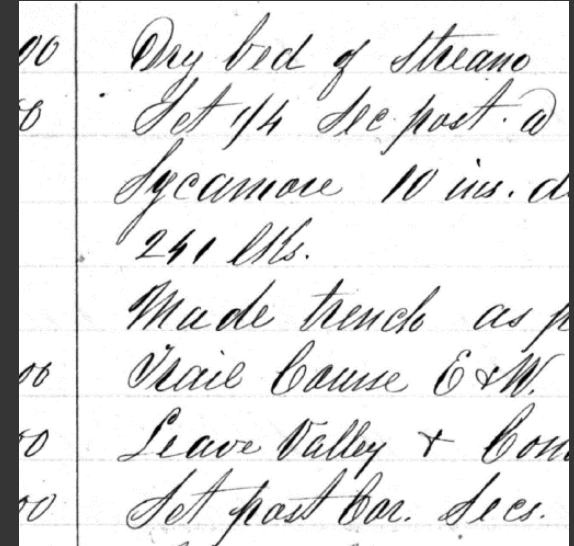 00 Dry bed of stream
Set 1/4 Sec post. a
Sycamore 10 ins. d
241 lks.
Made trench as p
00 Trail Course E & W.
00 Leave Valley & Com
00 Set post Cor. Secs.